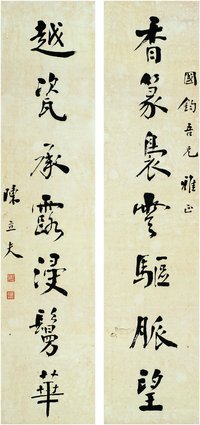 國鈞吾兄雅正
香篆裊雲驅脈望
越瓷承露浸鬘華
陳立夫